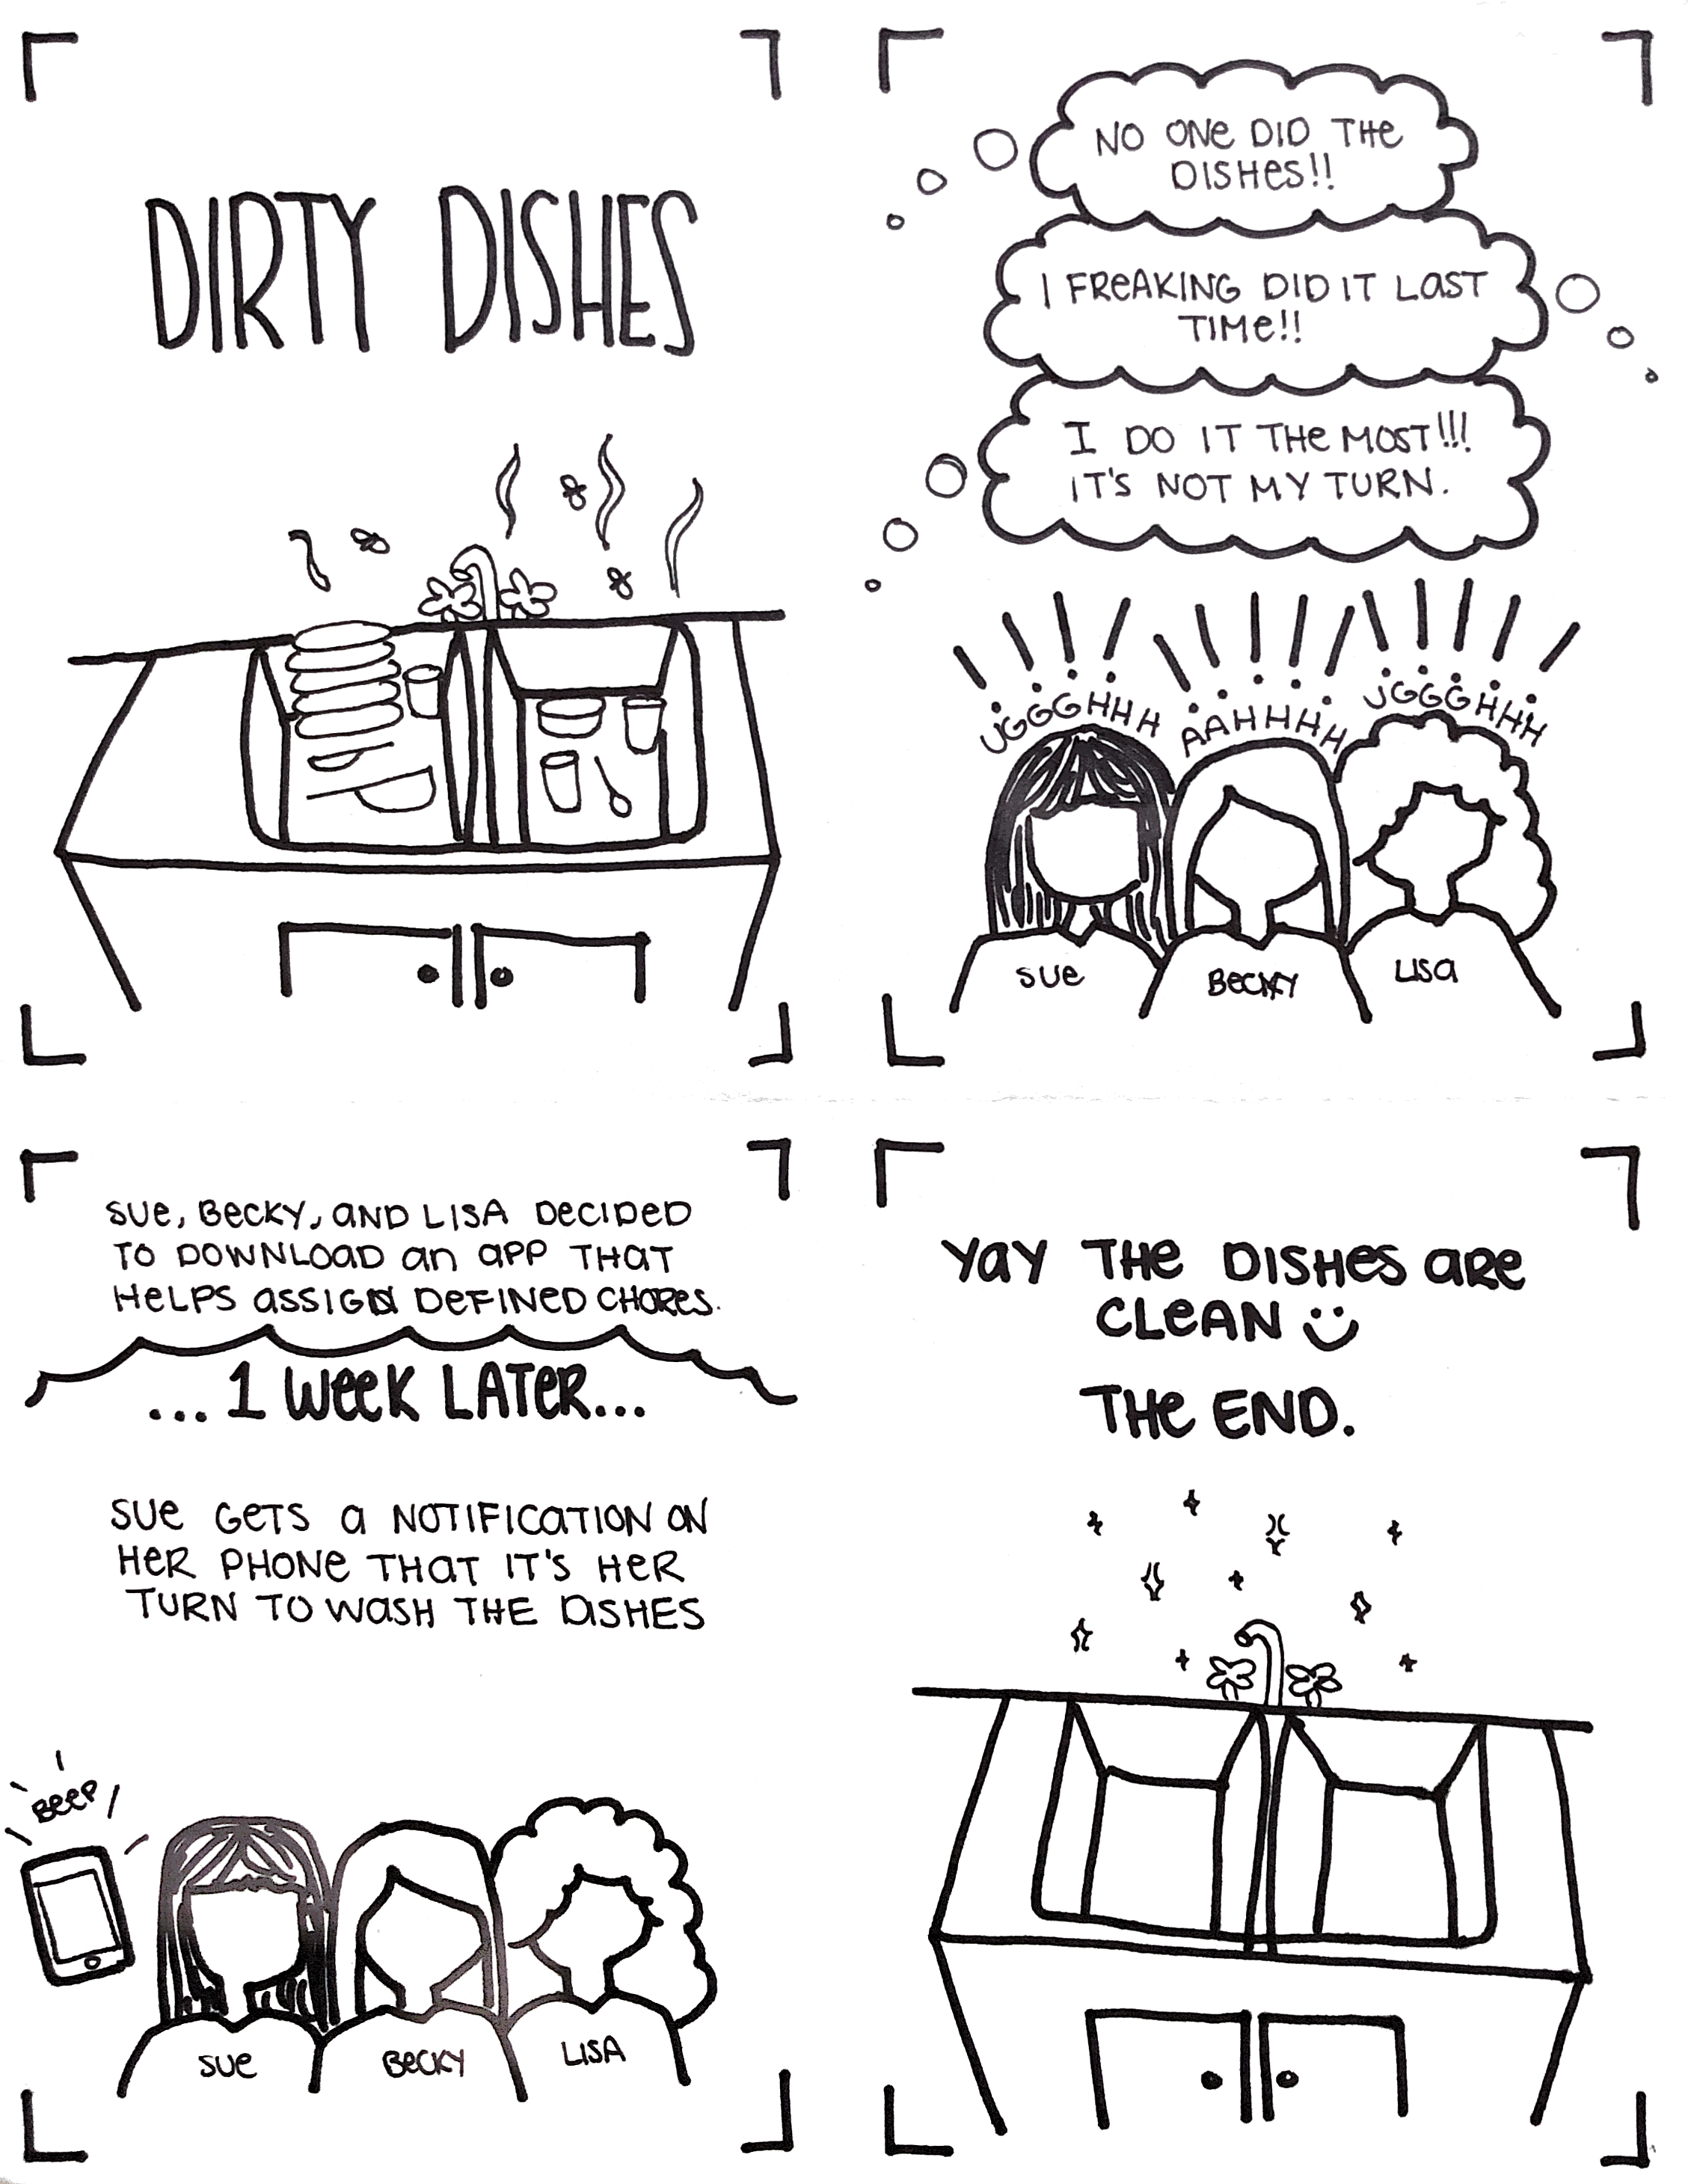 DIRTY DISHES
NO ONE DID THE
DISHES!!
I FREAKING DID IT LAST
TIME!!
I DO IT THE MOST!!!
IT'S NOT MY TURN.
UGGGHHH
AAHHHHH
UGGGHHH
SUE
BECKY
LISA
SUE, BECKY, AND LISA DECIDED
TO DOWNLOAD an APP THAT
HELPS ASSIGN DEFINED CHORES.
...1 WEEK LATER...
SUE GETS A NOTIFICATION ON
HER PHONE THAT IT'S HER
TURN TO WASH THE DISHES
BEEP
SUE
BECKY
LISA
YAY THE DISHES ARE
CLEAN
THE END.